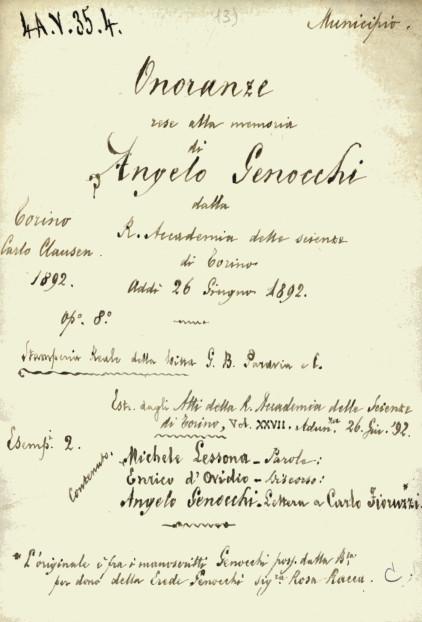 4A.V.35.4.
13)
Municipio.
Onoranze
rese alla memoria
di
Angelo Genocchi
dalla
R. Accademia delle scienze
di Torino
Addì 26 Giugno 1892.
Torino
Carlo Clausen.
1892.
Op.º 8.º
Stamperia Reale della Ditta G. B. Paravia e C.
Estr. dagli Atti della R. Accademia delle Scienze
di Torino, Vol. XXVII. Adun.za 26. Giu. '92.
Esempi. 2.
Contenuto.
Michele Lessona - Parole;
Enrico d'Ovidio - Discorso;
Angelo Genocchi - Lettera a Carlo Fioruzzi.*
* L'originale è fra i manoscritti Genocchi posp. dalla B.ca
per dono della Erede Genocchi sig.ra Rosa Racca.
C